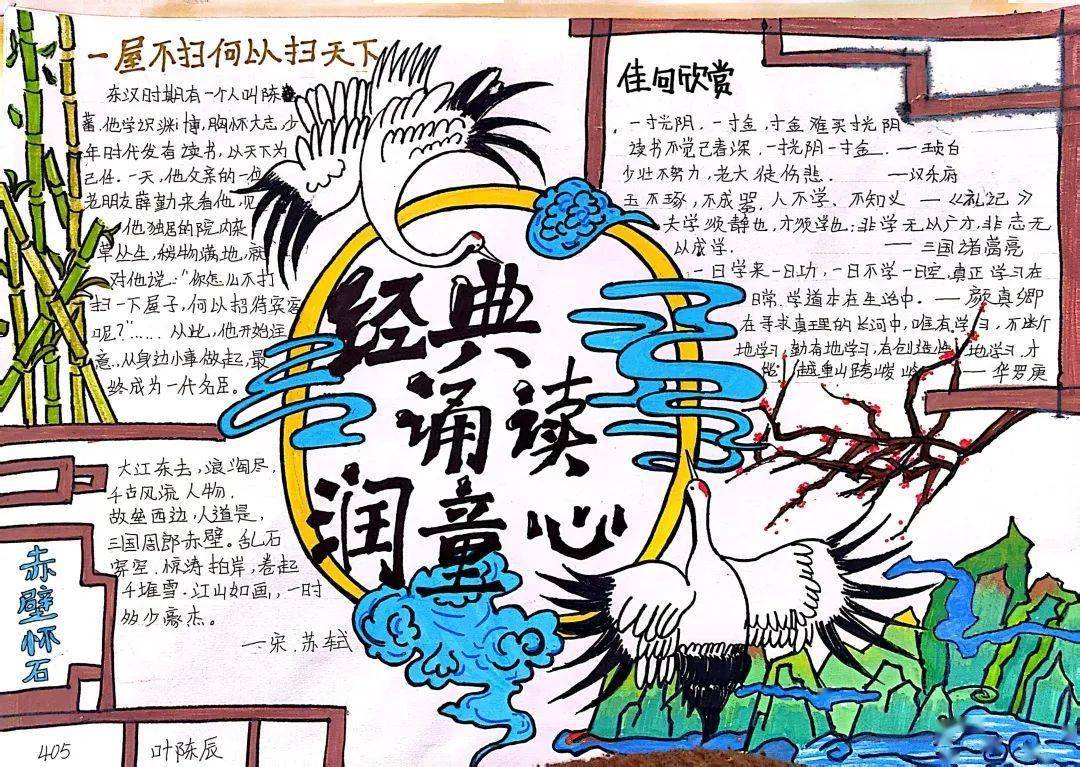 一屋不扫何以扫天下
东汉时期有一个人叫陈蕃
蕃,他学识渊博,胸怀大志,少
年时代发有读书,以天下为
己任。一天,他父亲的一位
老朋友薛勤来看他,见
他独居的院内杂
草丛生,秽物满地,就
对他说:“你怎么不打
扫一下屋子,何以招待宾客
呢?”……从此,他开始注
意,从身边小事做起,最
终成为一代名臣。
佳句欣赏
一寸光阴,一寸金,寸金难买寸光阴
读书不觉已春深,一寸光阴一寸金。—王贞白
少壮不努力,老大徒伤悲. —汉乐府
玉不琢,不成器.人不学、不知义 —《礼记》
夫学须静也,才须学也;非学无以广才,非志无
以成学. — 三国诸葛亮
一日学来一日功,一日不学一日空,真正学习在
日常.学道本在生活中.—颜真卿
在寻求真理的长河中,唯有学习,不断
地学习,勤有地学习,有创造性地学习,才
能越重山跨峻岭 — 华罗庚
经典
诵读
润童心
大江东去,浪淘尽,
千古风流人物.
故垒西边,人道是,
三国周郎赤壁。乱石
穿空.惊涛拍岸,卷起
千堆雪.江山如画,一时
多少豪杰。
—宋.苏轼
赤壁怀石
405 叶陈辰